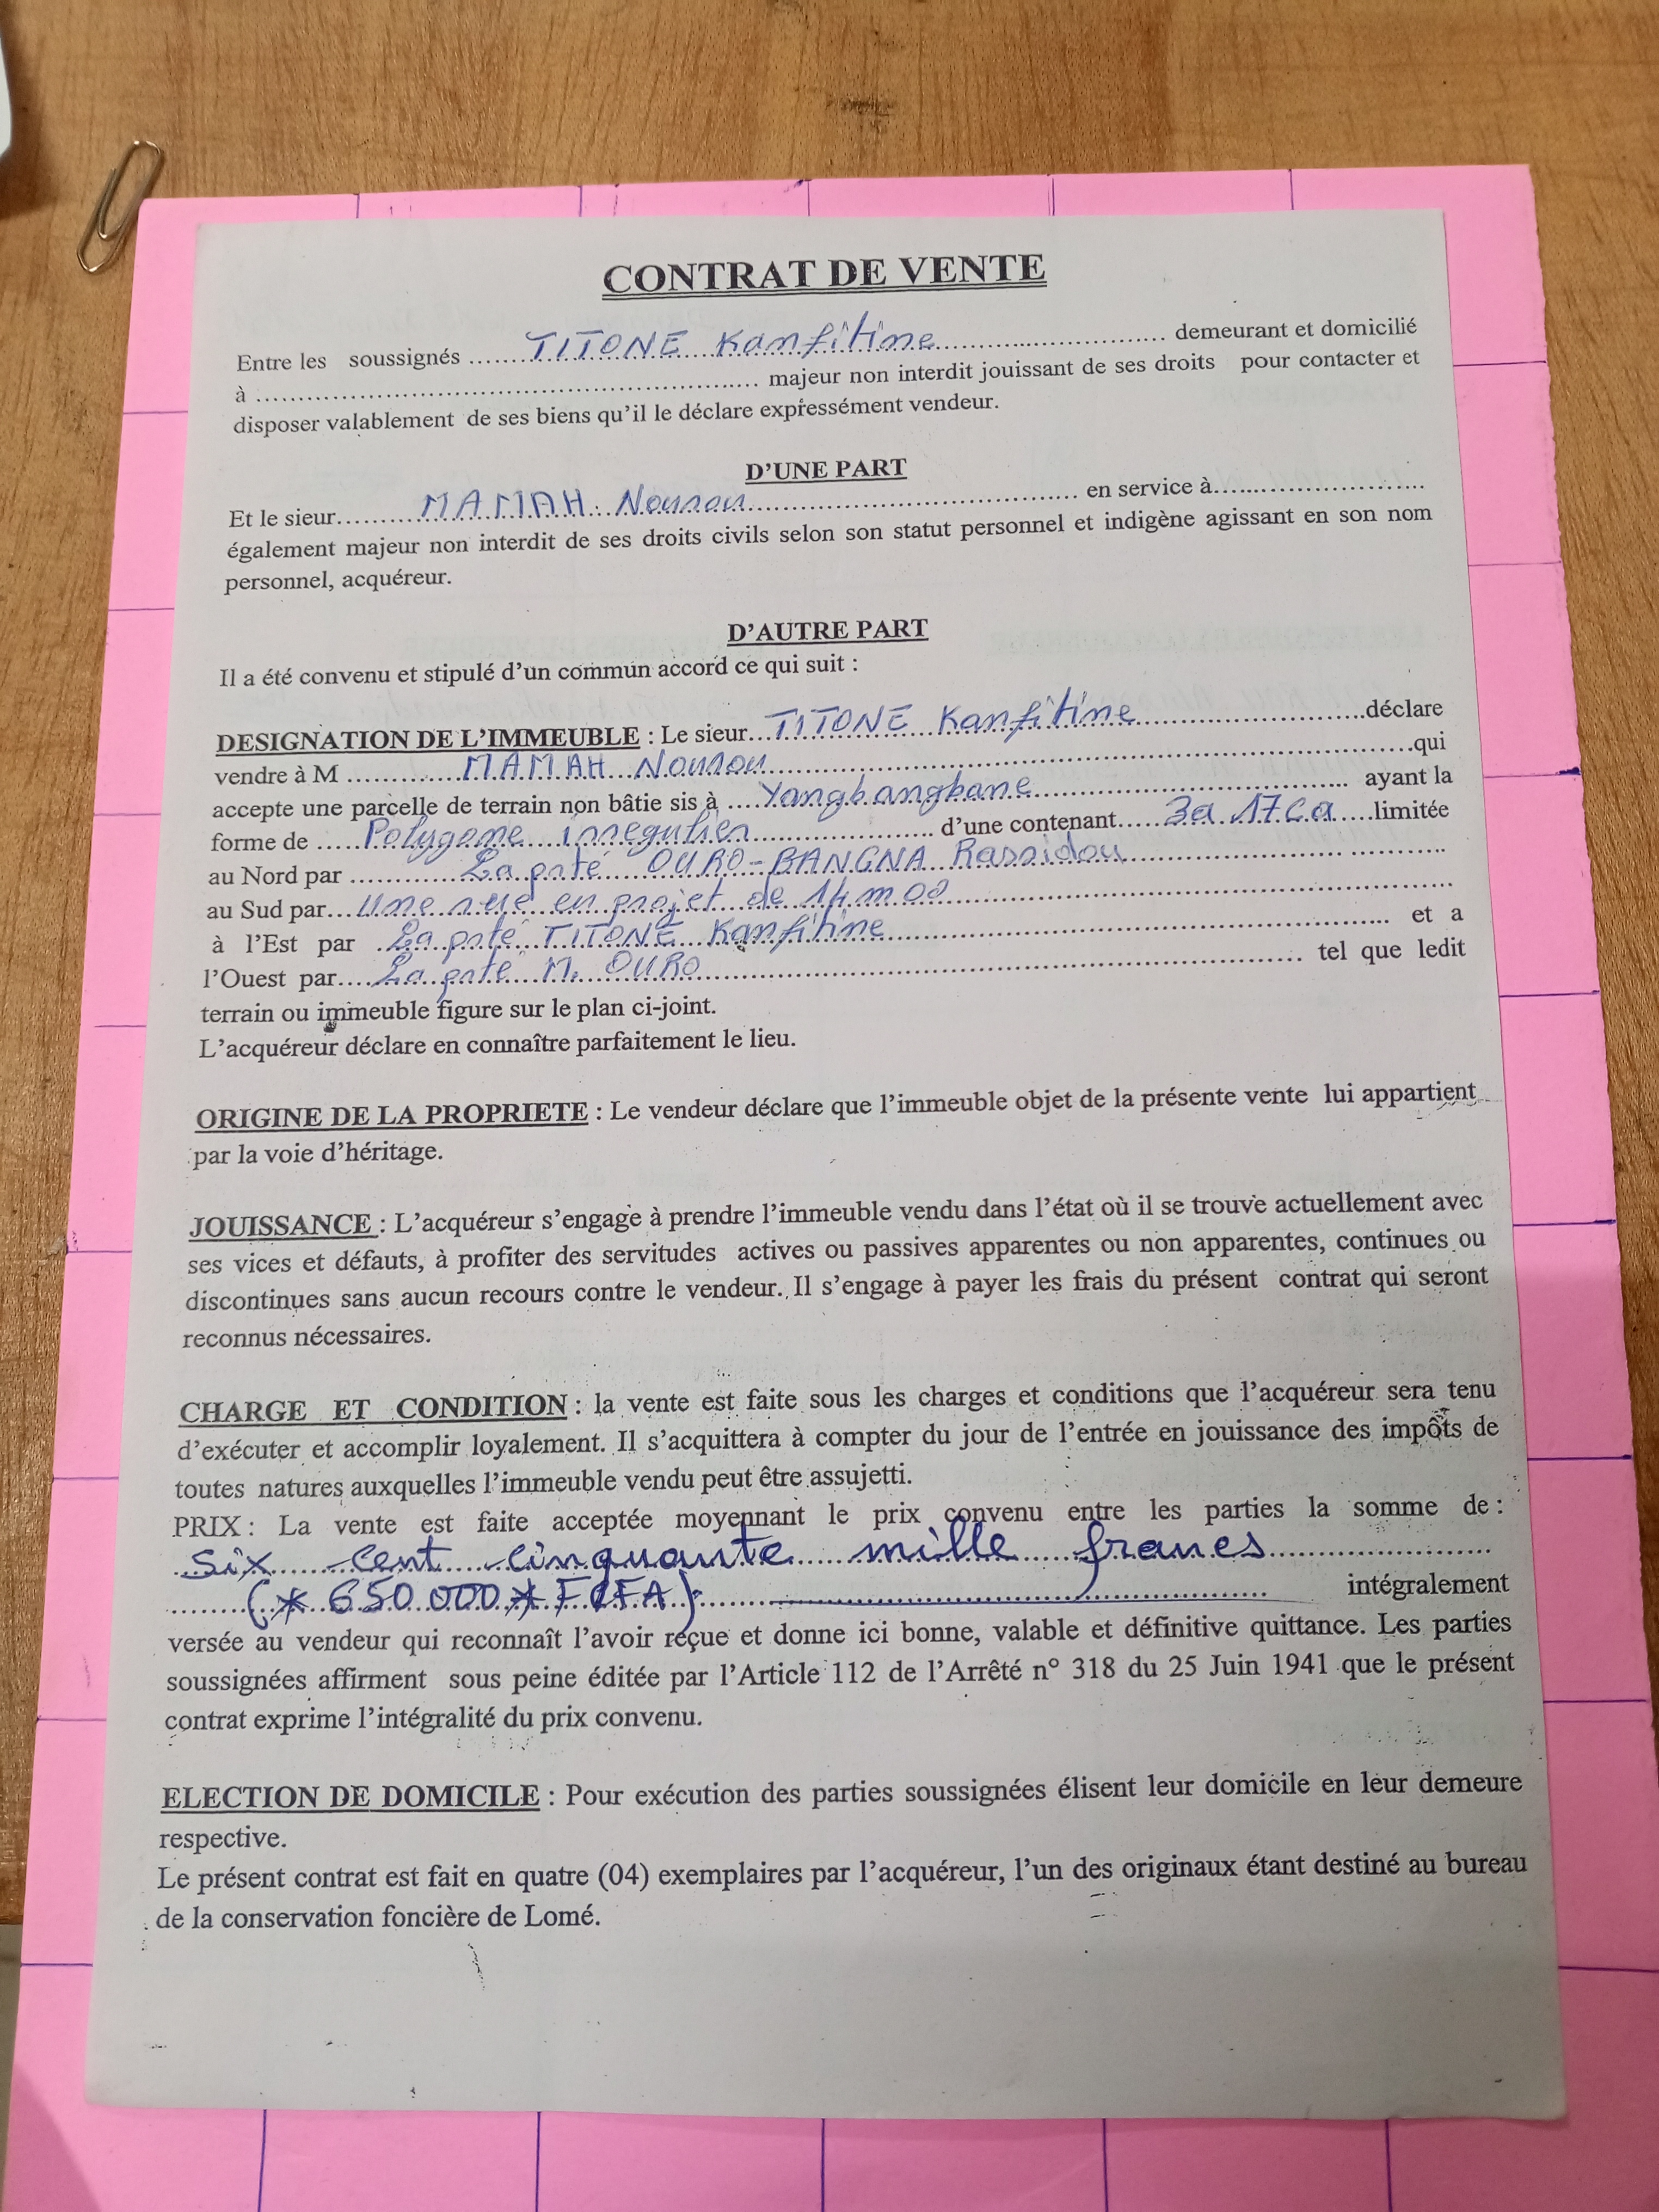 CONTRAT DE VENTE
Entre les soussignés ......TITONE Kanfitine.................................. demeurant et domicilié
à .................................................................... majeur non interdit jouissant de ses droits pour contacter et
disposer valablement de ses biens qu'il le déclare expressément vendeur.
D'UNE PART
Et le sieur...........MAMAH Nourou............................................... en service à.............................
également majeur non interdit de ses droits civils selon son statut personnel et indigène agissant en son nom
personnel, acquéreur.
D'AUTRE PART
Il a été convenu et stipulé d'un commun accord ce qui suit :
DESIGNATION DE L'IMMEUBLE : Le sieur...TITONE Kanfitine..............................déclare
vendre à M ............MAMAH Nourou.................................................................qui
accepte une parcelle de terrain non bâtie sis à ....Yangbangbane........................................ ayant la
forme de .....Polygone irregulier........................ d'une contenant.....3a 17ca.....limitée
au Nord par ...........La pté OURO-BANGNA Rassidou........................................
au Sud par...Une rue en projet de 14m00.................................................................
à l'Est par ..La pté TITONE Kanfitine................................................................ et a
l'Ouest par....La pté M. OURO........................................................................ tel que ledit
terrain ou immeuble figure sur le plan ci-joint.
L'acquéreur déclare en connaître parfaitement le lieu.
ORIGINE DE LA PROPRIETE : Le vendeur déclare que l'immeuble objet de la présente vente lui appartient
par la voie d'héritage.
JOUISSANCE : L'acquéreur s'engage à prendre l'immeuble vendu dans l'état où il se trouve actuellement avec
ses vices et défauts, à profiter des servitudes actives ou passives apparentes ou non apparentes, continues ou
discontinues sans aucun recours contre le vendeur. Il s'engage à payer les frais du présent contrat qui seront
reconnus nécessaires.
CHARGE ET CONDITION : la vente est faite sous les charges et conditions que l'acquéreur sera tenu
d'exécuter et accomplir loyalement. Il s'acquittera à compter du jour de l'entrée en jouissance des impôts de
toutes natures auxquelles l'immeuble vendu peut être assujetti.
PRIX : La vente est faite acceptée moyennant le prix convenu entre les parties la somme de :
Six cent cinquante mille francs..............................
.........(* 650.000 * FCFA)........................................................... intégralement
versée au vendeur qui reconnaît l'avoir reçue et donne ici bonne, valable et définitive quittance. Les parties
soussignées affirment sous peine éditée par l'Article 112 de l'Arrêté n° 318 du 25 Juin 1941 que le présent
contrat exprime l'intégralité du prix convenu.
ELECTION DE DOMICILE : Pour exécution des parties soussignées élisent leur domicile en leur demeure
respective.
Le présent contrat est fait en quatre (04) exemplaires par l'acquéreur, l'un des originaux étant destiné au bureau
de la conservation foncière de Lomé.